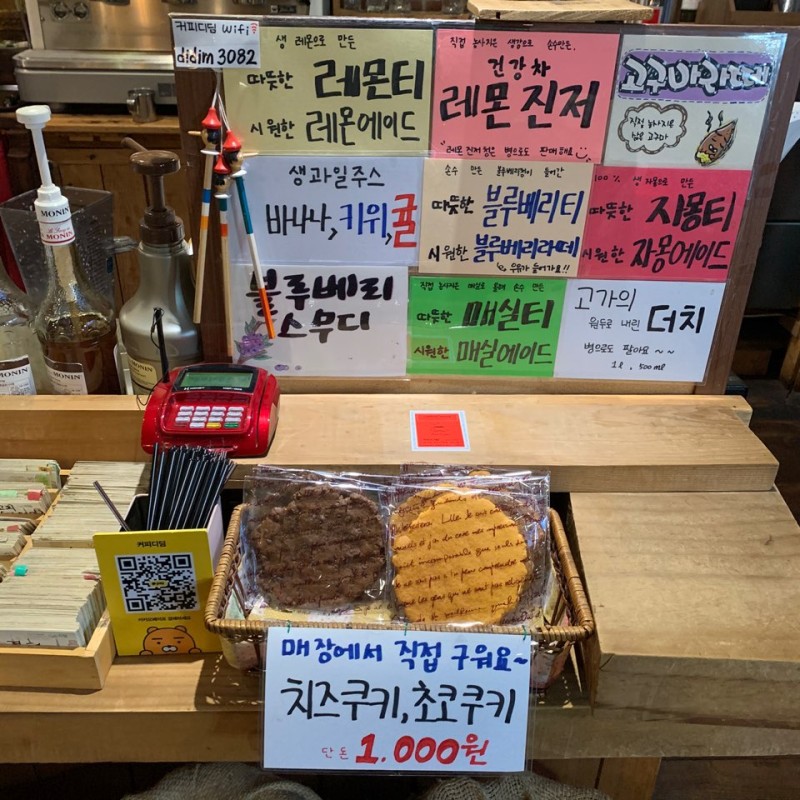 커피디딤 Wifi
didim 3082
생 레몬으로 만든
따뜻한 레몬티
시원한 레몬에이드
직접 농사지은 생강으로 손수만든,
건강차
레몬 진저
레몬 진저청은 병으로도 판매해요
고구마라떼
직접 농사지은
밤은 고구마
생과일주스
바나나, 키위, 귤
손수 만든 블루베리청이 들어간
따뜻한 블루베리티
시원한 블루베리라떼
우유가 들어가요!!
100% 생 자몽으로 만든
따뜻한 자몽티
시원한 자몽에이드
블루베리
스무디
직접 농사지은 매실로 손수 만든
따뜻한 매실티
시원한 매실에이드
고가의
원두로 내린 더치
병으로도 팔아요~~
1ℓ, 500㎖
MONIN
MONIN
MONIN
커피디딤
매장에서 직접 구워요~
치즈쿠키, 초코쿠키
단돈 1.000원